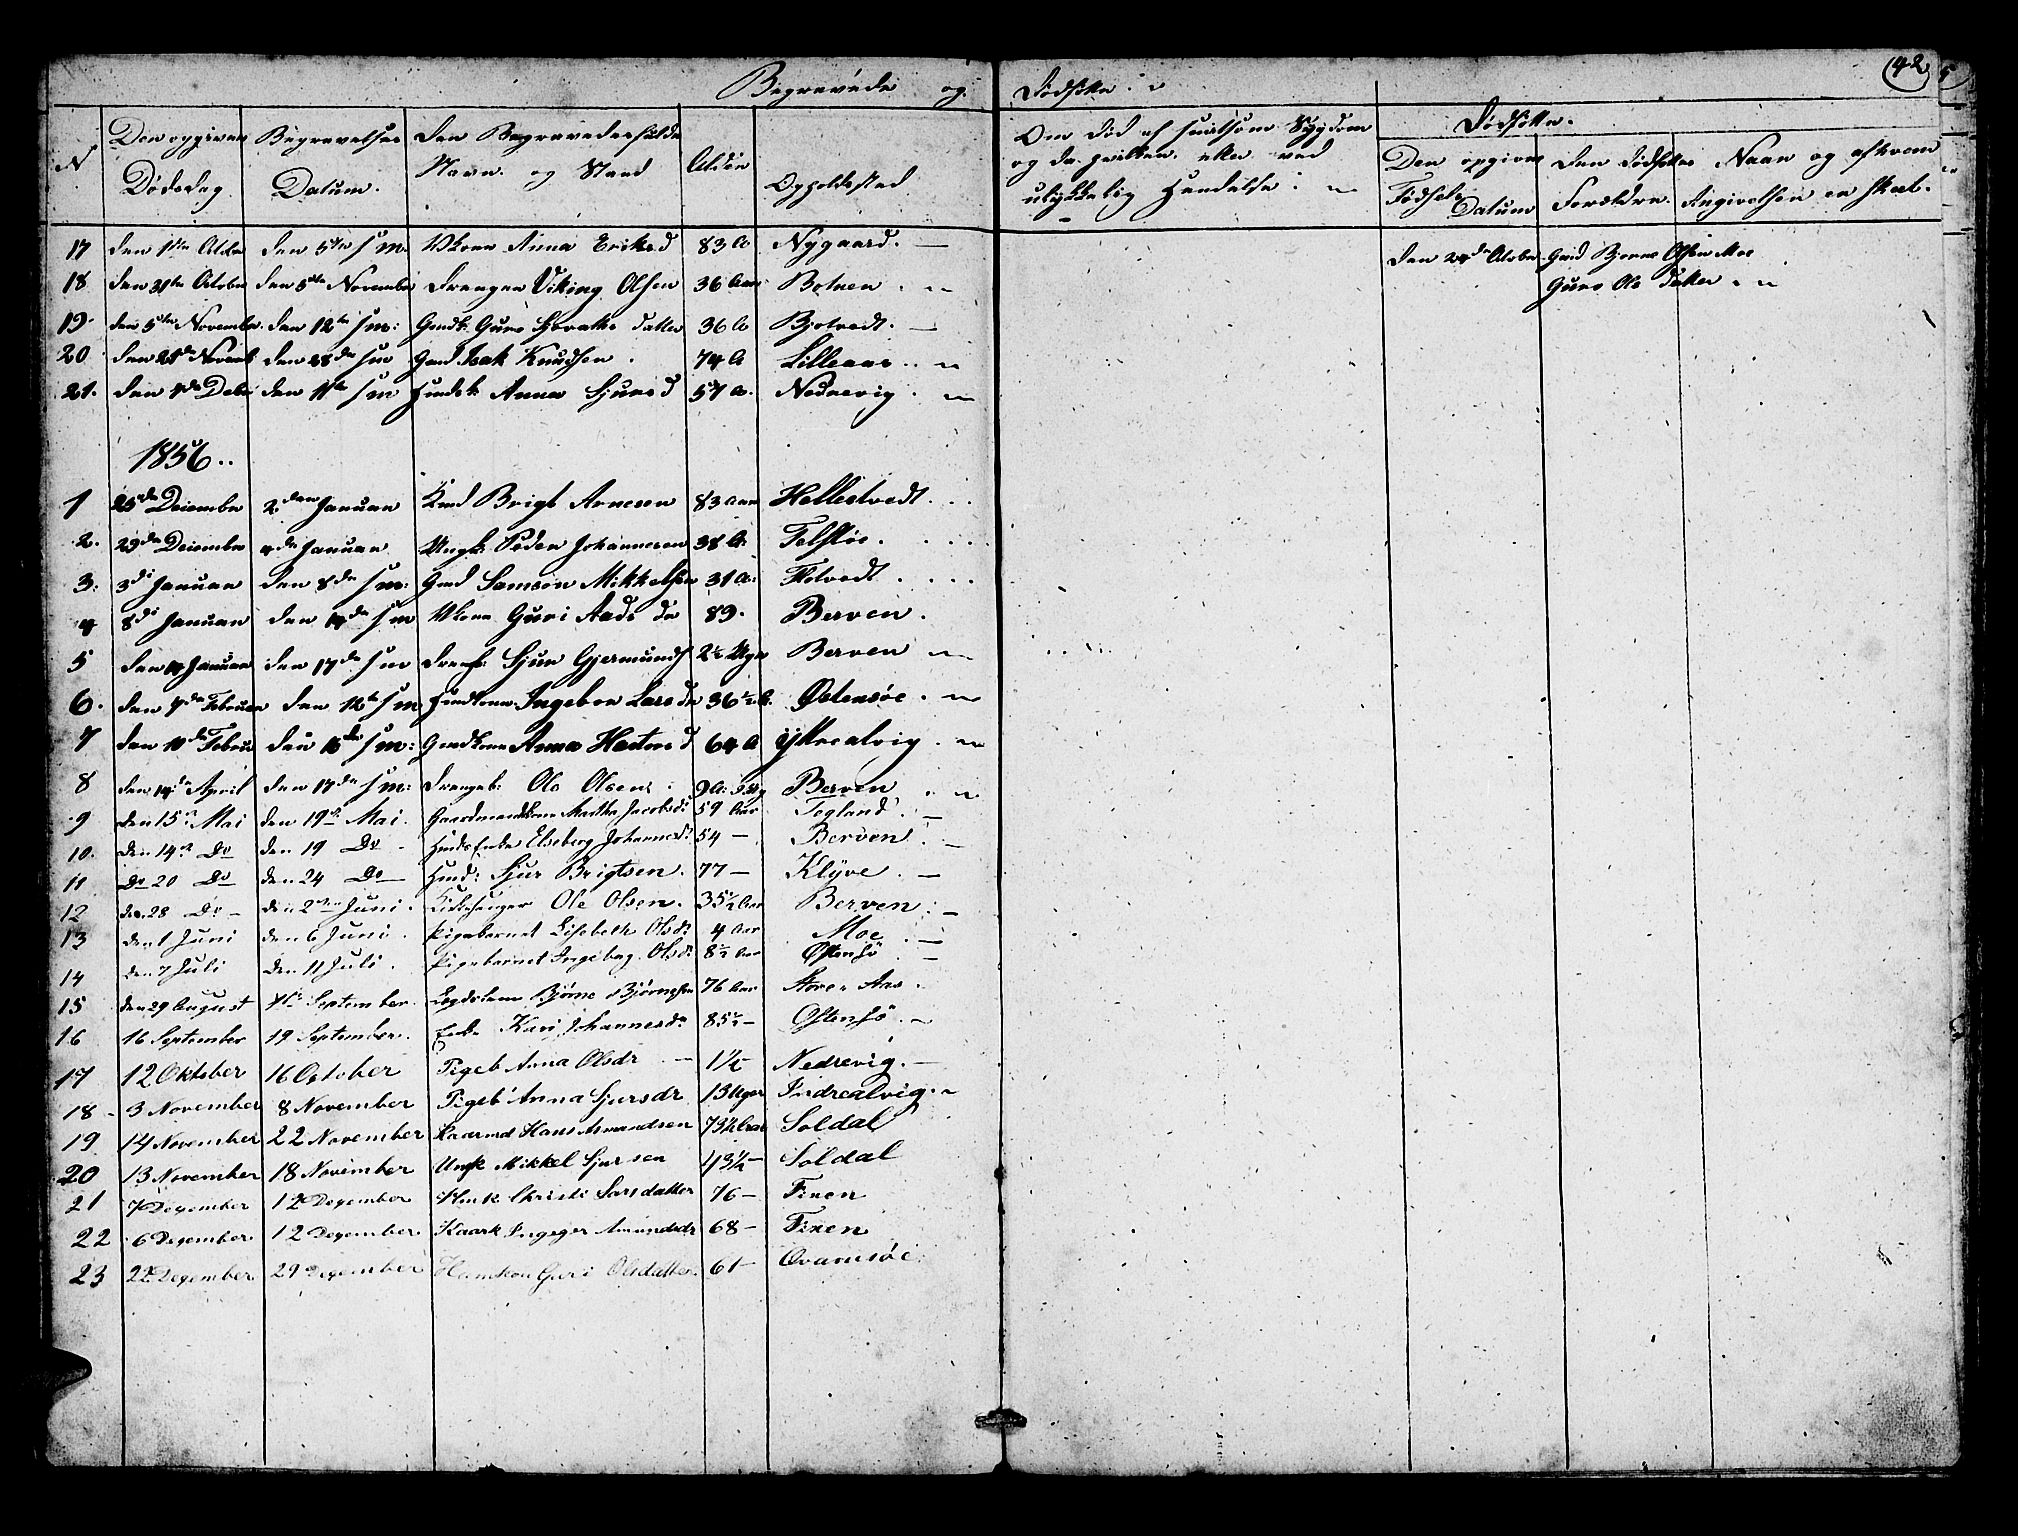 42
Begravede og Dødføtte
N
Den opgivne Dødsdag
Begravelses Datum.
Den Begravedes fulde Navn og Stand
Alder
Opholdsted
Om Død af smitsom Sygdom
og da hvilken eller ved
ulykkelig Hændelse
Dødføtte.
Den opgivne Fødsels Datum
Den Dødføttes Forældre.
Naar og af hvem Angivelsen er skeet.
17 den 1ste Octbr den 5te s m. Vkone Anna Eriksd 83 A Nygaard.
18 den 31te Octobr den 5te November Drengen Viking Olsen 36 Aar Botnen.
den 24de Octobr Gmd Bjorne Olsen Moe
Guro Ols Datter
19. den 5te Novembr. den 12te s m: Gmdk: Guro Datter 36 A Bjotvedt.
20 den 21de Novemb den 28de s m Gmd Isak Knudsen. 74 A Lilleaas.
21. den 4de Debr den 11te s m Huusk. Anna Sjursd 57 A. Nedrevig.
1856..
1 25de Desember 2den Januar Kmd Brigt Arnesen 83 Aar Hellestvedt.
2. 29de Desember 4de Januar Ungk: Peder Johannesen 38 A. Telstøe.
3. 3di Januar den 8de s m: Gmd Samson Mikkelsen 31 A: Flotvedt.
4 8di Januar den 14de s m Vkone Guri Aads dr 89. Berven.
5 den 14 Januar den 17de s m Drenb: Sjur Gjermunds 2½ Uger Berven
6. den 7de Februar den 12te s m Huuskone Ingebor Lars dr 36½ A. Østensøe.
7 den 10de Februar den 16de s m: Gmdkone Anna d 64 A Yttrealvig.
8 den 14de April den 17de s m: Drengeb: Ole Olsen 9 A: Berven
9 den 15de Mai den 19de Mai. Gaardmandskone Martha Jacobsd: 59 Aar Tegland.
10. den 14de Do den 19 Do Huusm Enke Elseberg Johannesd: 54 — Berven.
11 Do 20 Do den 24 Do Huusd: Sjur Brigtsen. 77 — Klyve.
12 den 28 Do den 2den Juni. Kirkesanger Ole Olsen. 35½ Aar Berven.
13 den 1 Juni den 6 Juni. Pigebarnet Lisebeth Olsd: 4 Aar Moe
14 den 7 Juli den 11 Juli. Pigebarnet Ingebag. Olsd: 8½ Aar Østensø
15 den 29 August 4de September. Lægdslem Bjørne Bjørnesen 76 Aar Store Aas.
16 16 September 19 September. Enke Kari Johannesdr 85½ — Ostensø.
17 12 Oktober 16 October Pigeb Anna Olsdr 1½ Nedrevig.
18 3 November 8 November Pigeb Anna Sjursdr 13 Uger Indrealvig.
19 14 November 22 November Kaarmd Hans Asmundsen 73½ Aar Soldal
20 13 November 18 November Ungk Mikkel Sjursen 43½ — Soldal
21 7 Degember 12 Degember Christi Larsdatter 76 — Fixen
22 6 Degember 12 Degember. Kaark Ingeger Amundsdr 68 — Fixen
23 22 Degember 29 Degember Huuskon Guri Olsdatter. 61 — Ovamsøe.